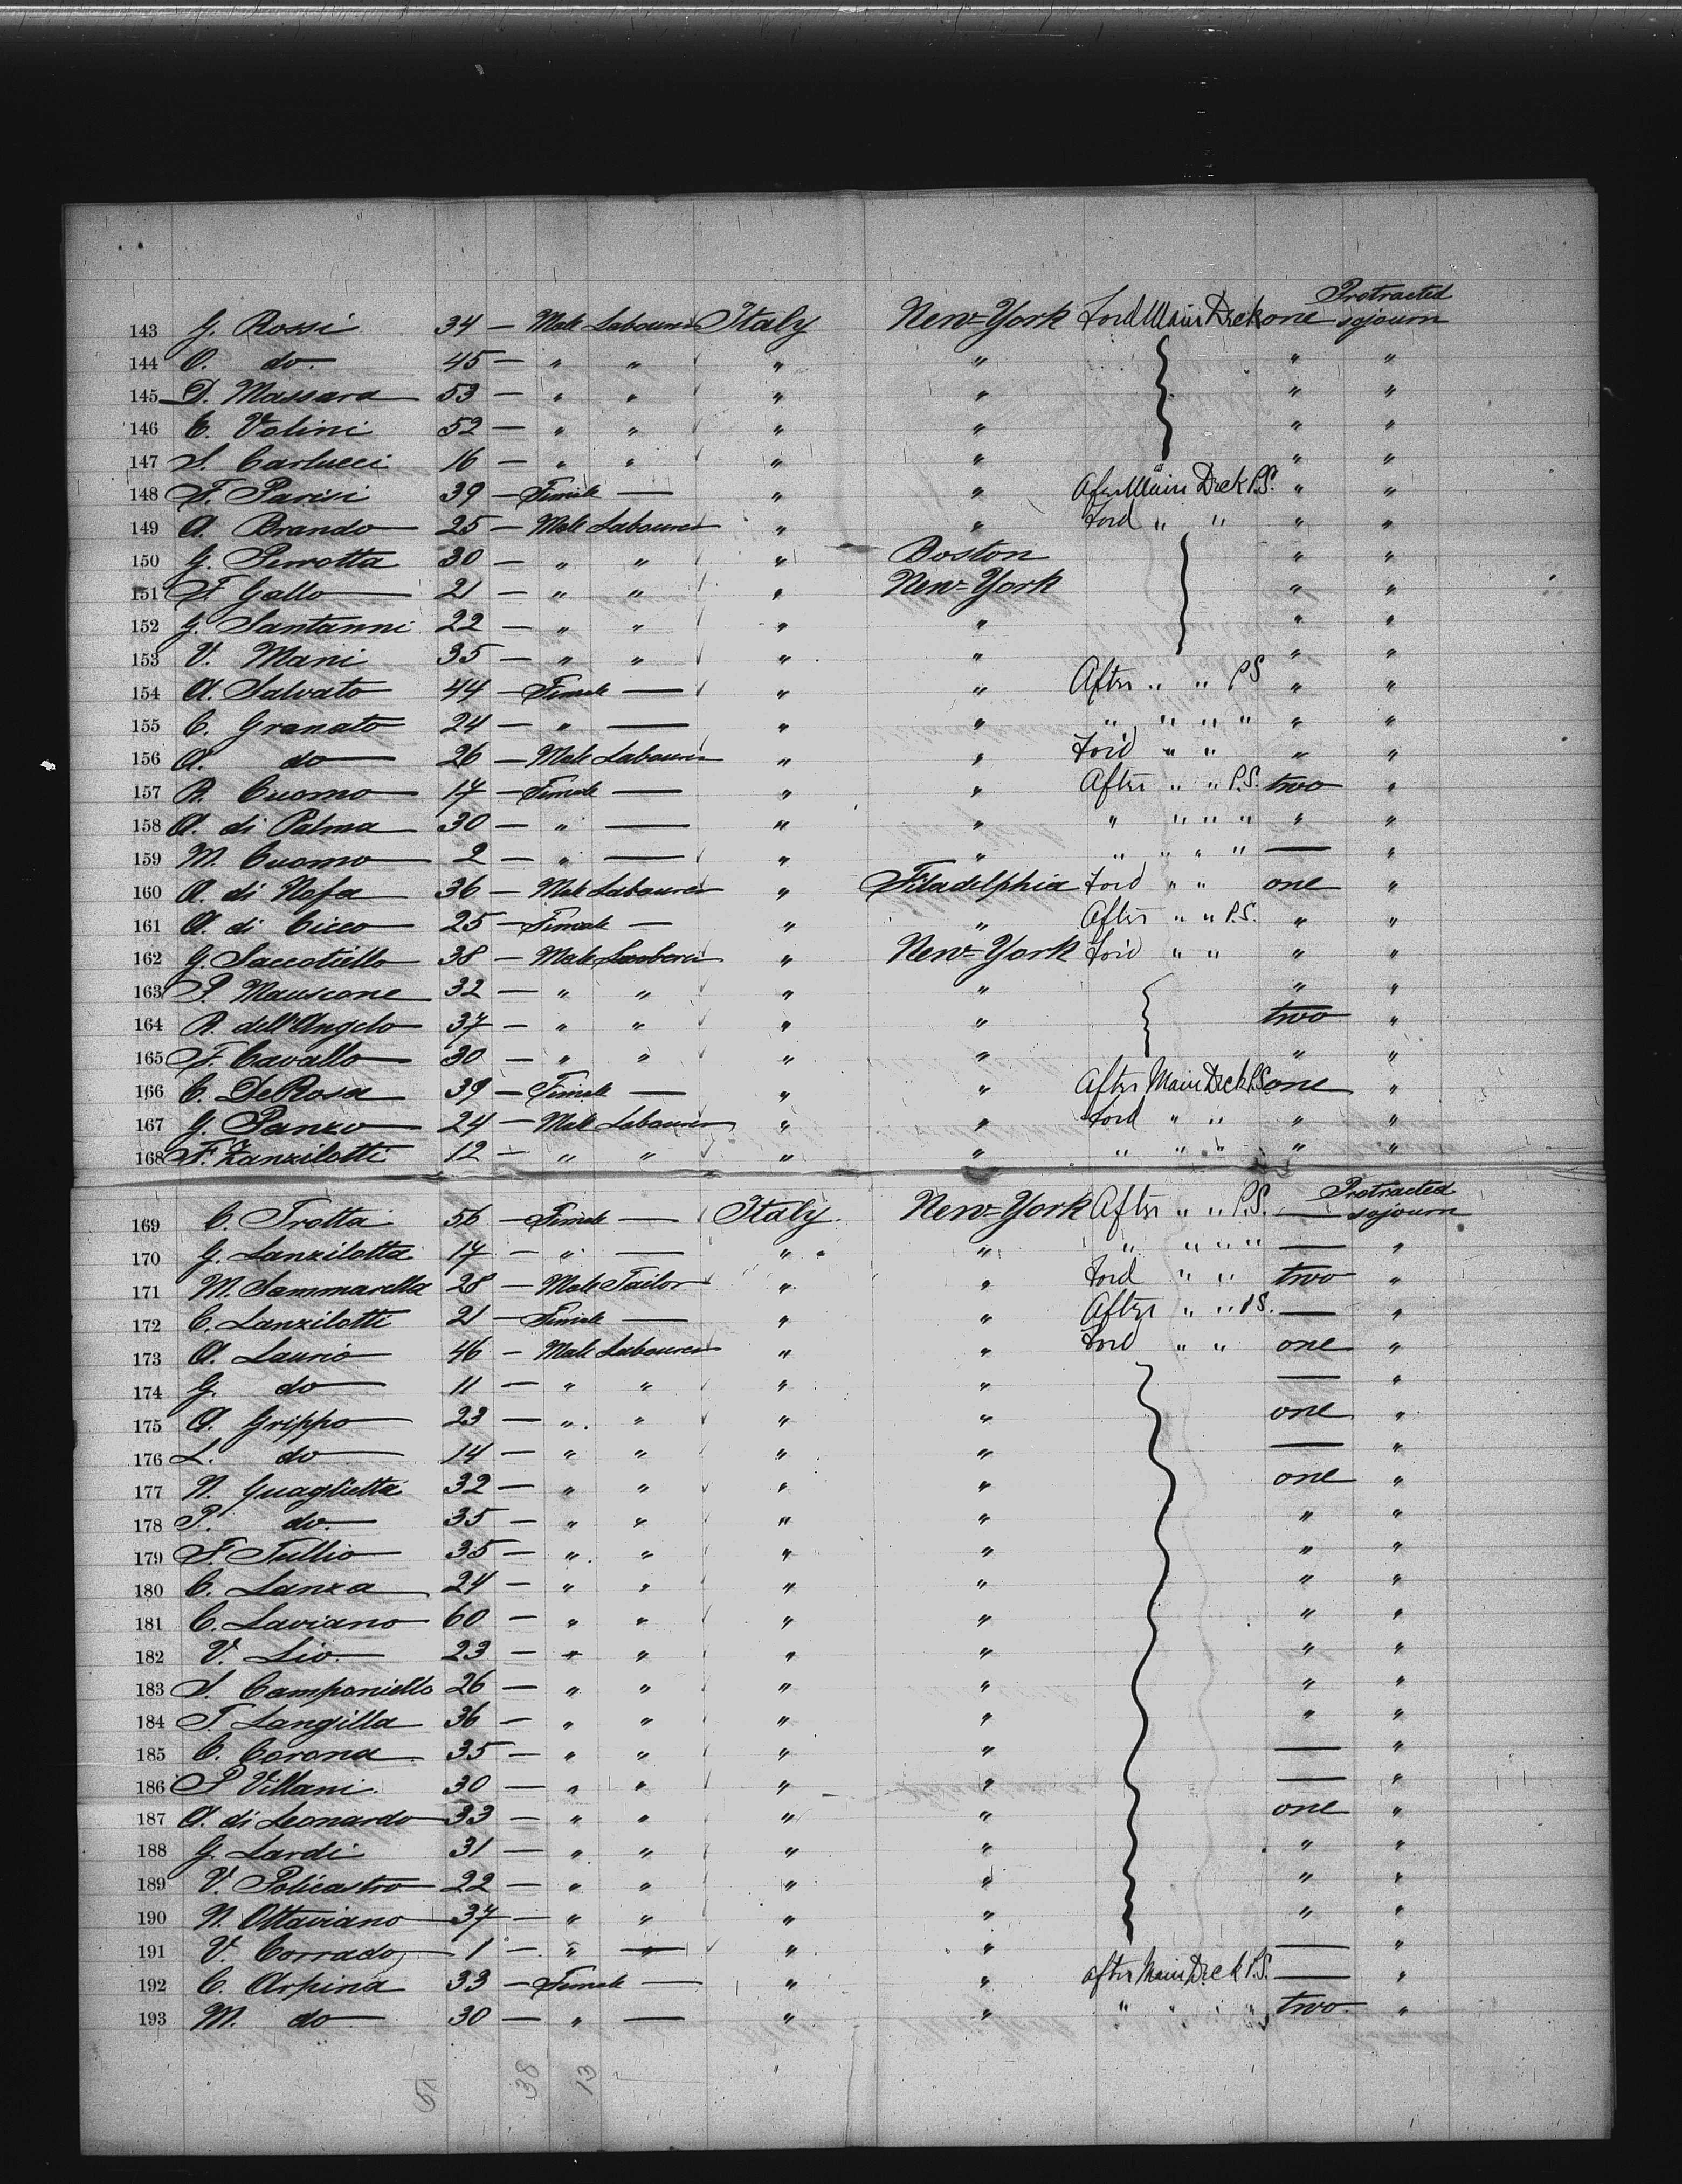 143 G. Rossi 34 — Male Labourer Italy New-York Ford Main Deck one Protracted sojourn
144 O. do. 45 — " " " " " "
145 D. Massara 53 — " " " " " "
146 C. Volini 52 — " " " " " "
147 S. Carlucci 16 — " " " " " "
148 F. Parisi 39 — Female — " " After Main Deck P.S. " "
149 A. Brando 25 — Male Labourer " " Ford " " " "
150 G. Perrotta 30 — " " " Boston " "
151 F. Gallo 21 — " " " New-York " "
152 G. Santanni 22 — " " " " " "
153 V. Mani 35 — " " " " " "
154 A. Salvato 44 — Female — " " After " " P.S " "
155 C. Granato 24 — " — " " " " " " " "
156 A. do 26 — Male Labourer " " Ford " " " "
157 R. Cuomo 17 — Female — " " After " " P.S. two "
158 A. di Palma 30 — " — " " " " " " " "
159 M. Cuomo 2 — " — " " " " " " — "
160 A. di Nofa 36 — Male Labourer " Filadelphia Ford " " one "
161 A. di Cicco 25 — Female — " " After " " P.S. " "
162 G. Saccotiello 38 — Male " New-York Ford " " " "
163 P. Mauscone 32 — " " " " " "
164 R. dell'Angelo 37 — " " " " two "
165 F. Cavallo 30 — " " " " " "
166 C. DeRosa 39 — Female — " " After Main Deck P.S. one "
167 G. Panzo 24 — Male Labourer " " Ford " " " "
168 F. Zanzilotti 12 — " " " " " " " " "
169 C. Trotta 56 — Female — Italy New-York After " " P.S. — Protracted sojourn
170 G. Lanzilotta 17 — " — " " " " " " — "
171 M. Sammarella 28 — Male Tailor " " Ford " " two "
172 C. Lanzilotti 21 — Female — " " After " " P.S. — "
173 A. Laurio 46 — Male Labourer " " Ford " " one "
174 G. do 11 — " " " " — "
175 A. Grippo 23 — " " " " one "
176 L. do 14 — " " " " — "
177 N. Guaglietta 32 — " " " " one "
178 P. do. 35 — " " " " " "
179 F. Tullio 35 — " " " " " "
180 C. Lanza 24 — " " " " " "
181 C. Laviano 60 — " " " " " "
182 V. Lio. 23 — " " " " " "
183 S. Camponiello 26 — " " " " " "
184 T. Langilla 36 — " " " " " "
185 C. Corona 35 — " " " " — "
186 P Villani 30 — " " " " — "
187 A. di Leonardo 33 — " " " " one "
188 G. Lardi 31 — " " " " " "
189 V. Policastro 22 — " " " " " "
190 N. Ottaviano 37 — " " " " " "
191 V. Corrado 1 — " — " " — "
192 C. Arpina 33 — Female — " " after Main Deck P.S. — "
193 M. do 30 — " — " " " " " " two "
51 38 13